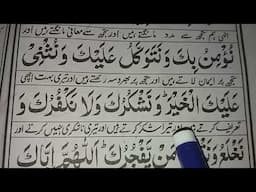 الٰہی ہم تجھ سے مدد مانگتے ہیں اور تجھ سے معافی مانگتے ہیں اور
نُؤْمِنُ بِكَ وَنَتَوَكَّلُ عَلَيْكَ وَنُثْنِيْ
تجھ پر ایمان لاتے ہیں اور تجھ پر بھروسہ رکھتے ہیں اور تیری بہت اچھی
عَلَيْكَ الْخَيْرَ وَنَشْكُرُكَ وَلَا نَكْفُرُكَ وَ
تعریف کرتے ہیں اور تیرا شکر کرتے ہیں اور تیری ناشکری نہیں کرتے اور
نَخْلَعُ مَنْ يَّفْجُرُكَ اَللّٰهُمَّ اِيَّاكَ